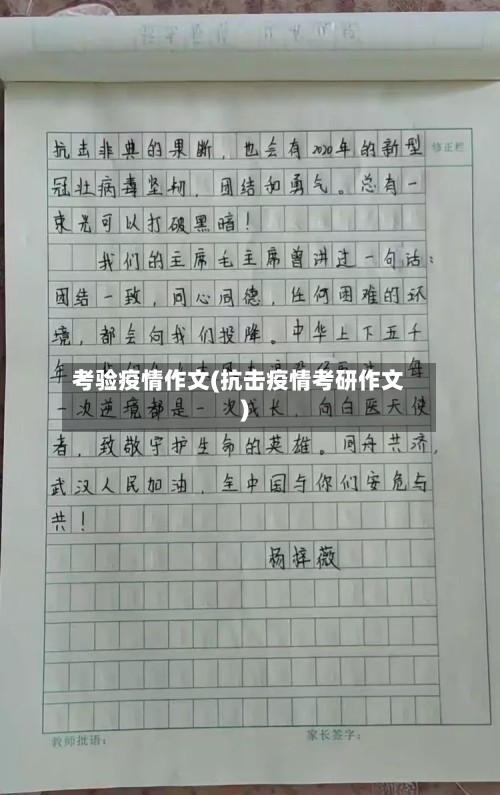 修正栏
抗击非典的果断，也会有2020年的新型
冠壮病毒坚韧，团结和勇气。总有一
束光可以打破黑暗！
我们的主席毛主席曾讲过一句话：
团结一致，同心同德，任何困难的环
境，都会向我们投降。中华上下五千
年
每
考验疫情作文(抗击疫情考研作文
)
一次逆境都是一次成长，向白医天使
者，致敬守护生命的英雄。同舟共济，
武汉人民加油，全中国与你们安危与
共！
杨梓薇
教师批语：
家长签字：